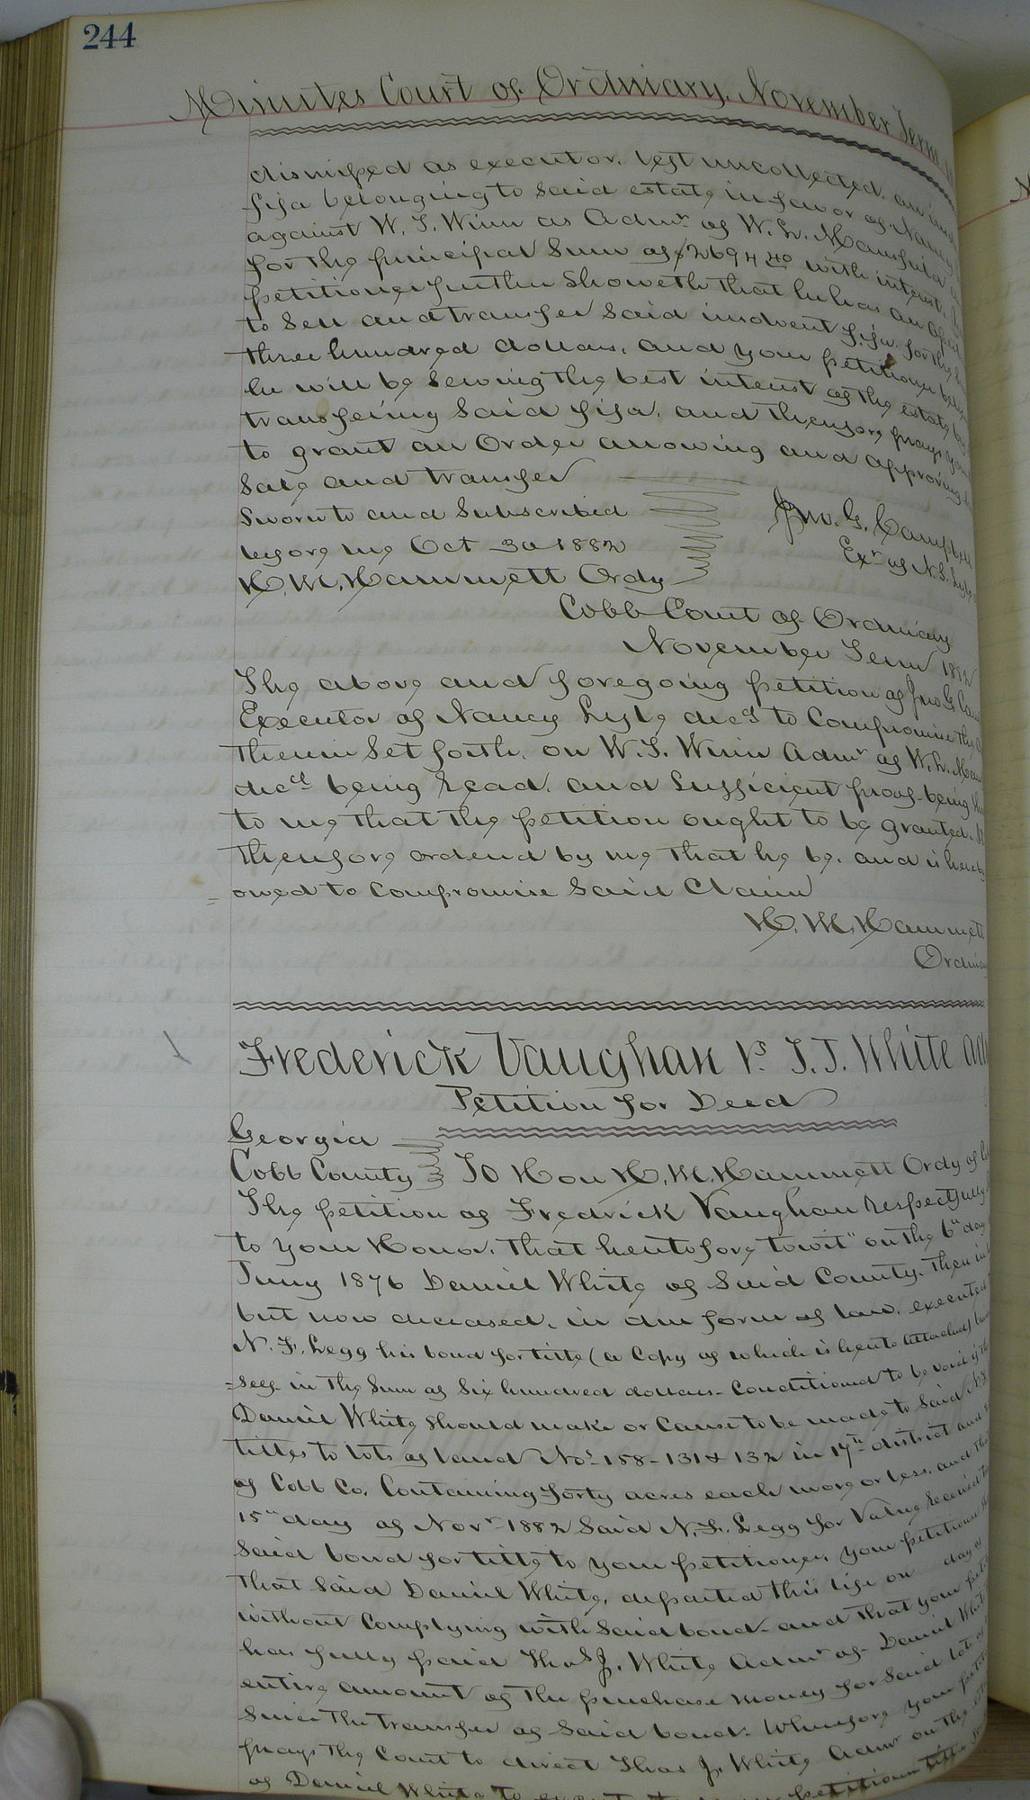 244
Minutes Court of Ordinary, November Term
dismissed as executor, left uncollected, an
fifa belonging to said estate in favor of Nancy
against W. J. Winn as Admr of W. L. Mansfield
for the principal Sum of $2694 40 with interest.
petitioner further Showeth that he has an
to Sell and transfer said insolvent fifa for the
three hundred dollars, and your petitioner
he will be Serving the best interest of the estate by
transfering Said fifa, and therefore prays
to grant an Order allowing and approving
Sale and transfer
Sworn to and Subscribed
before me Oct 30 1882
H. M. Hammett Ordy
Jno. G. Campbell
Exr of N. Lyle
Cobb Court of Ordinary
November Term 1882
The above and foregoing petition of Jno G
Executor of Nancy Lyle decd to Compromise the
therein Set forth, on W. J. Winn Admr of W. L.
decd being read, and Sufficient proof being
to me that the petition ought to be granted.
therefore ordered by me that he be, and is hereby
=owed to Compromise Said Claim
H. M. Hammett
Ordinary
Frederick Vaughan vs T. J. White
Petition for Deed
Georgia
Cobb County To Hon H. M. Hammett Ordy of
The petition of Fredrick Vaughan respectfully
to your Honor, that heretofore towit" on the 6" day
Juny 1876 Daniel White of Said County, then in
but now deceased, in due form of law, executed
N. F. Legg his bond for title (a Copy of which is hereto attached)
=self in the Sum of Six hundred dollars - Conditioned to be void if
Daniel White Should make or Cause to be made to Said
titles to lots of land Nos 158-131 & 132 in 17th district and
of Cobb Co. Containing forty acres each more or less, and
15" day of Novr 1882 Said N. F. Legg for Value received
Said bond for title to your petitioner, your petitioner
that Said Daniel White, departed this life on day of
without Complying with Said bond - and that your
has fully paid Thos J. White Admr of Daniel White
entire amount of the purchase money for Said lots
Since the transfer of Said bond: Wherefore your
prays the Court to direct Thos J. White Admr on the
of Daniel White to petitioner title